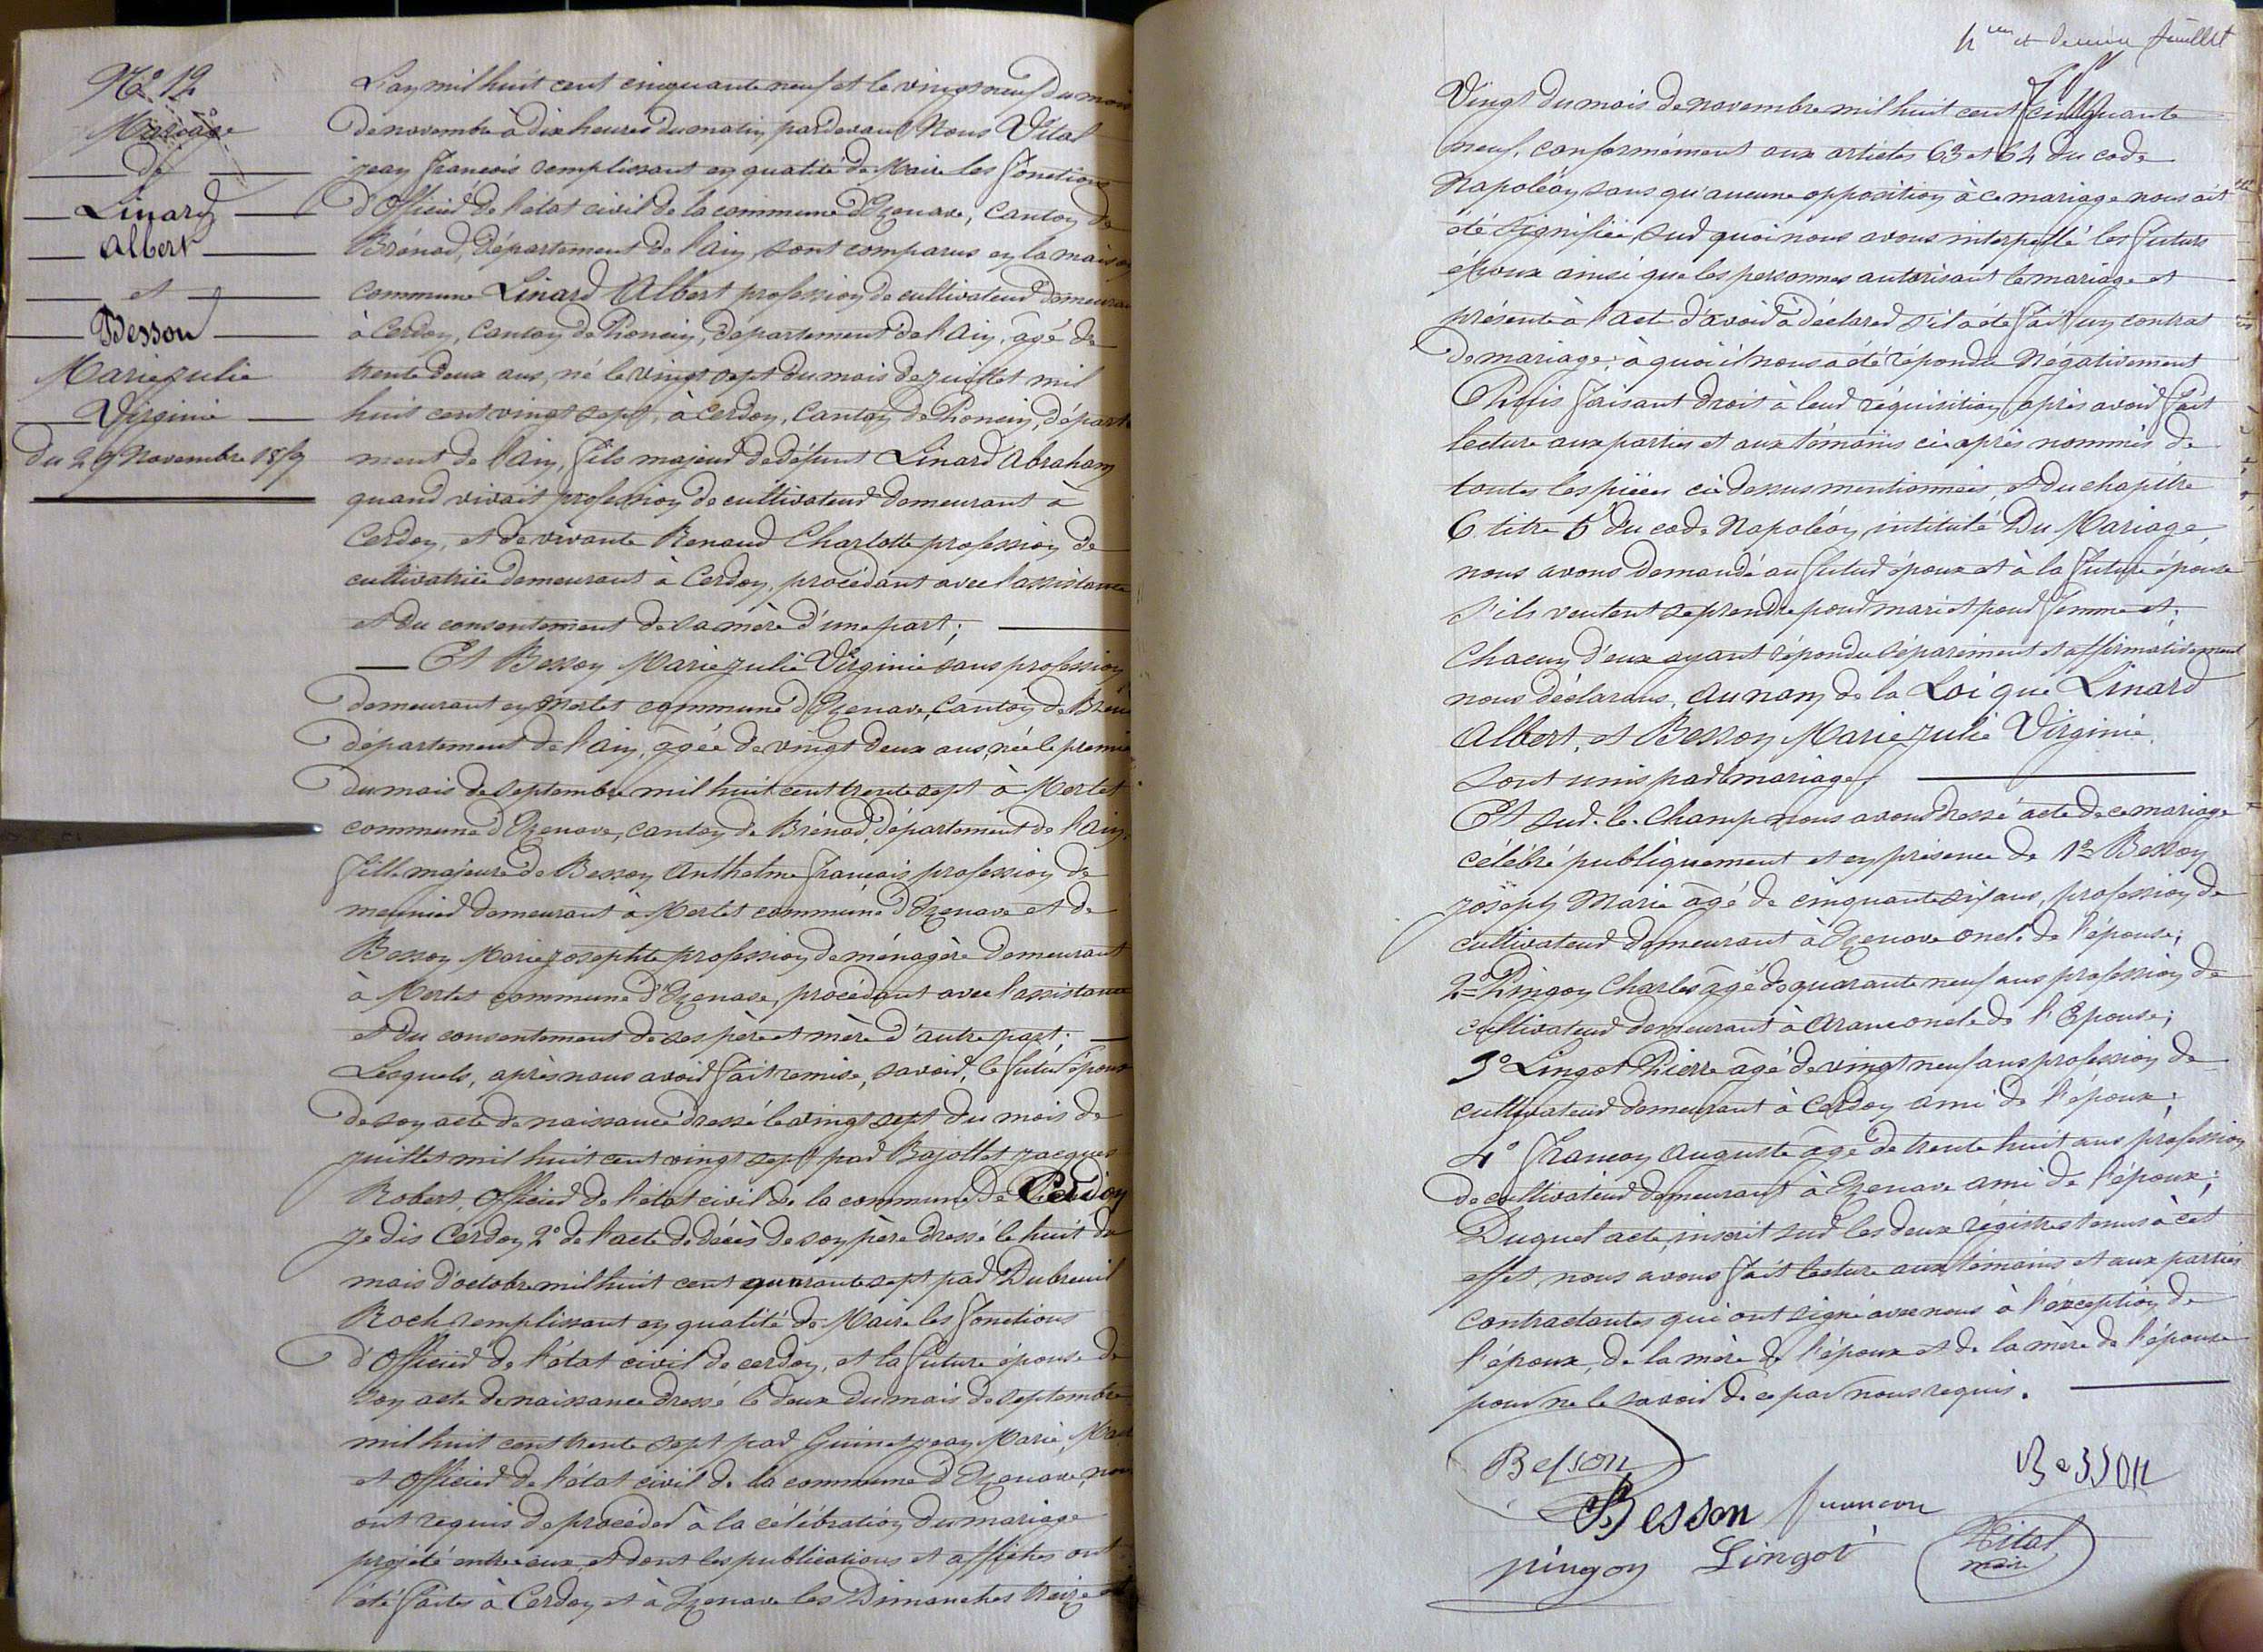 N.° 12
Mariage
de
Linard
Albert
et
Besson
Marie julie
Virginie
du 29 Novembre 1859
L'an mil huit cent cinquante neuf et le vingt neuf du mois
de novembre à dix heures du matin, pardevant Nous Vital
jean françois remplissant en qualité de Maire les fonctions
d'Officier de l'état civil de la commune d'Izenave, Canton de
Brénod, Département de l'ain, sont comparus en la maison
commune Linard Albert profession de cultivateur demeurant
à Cerdon, Canton de Poncin, département de l'Ain, âgé de
trente deux ans, né le vingt sept du mois de juillet mil
huit cent vingt sept, à Cerdon, Canton de Poncin, départe
ment de l'ain, fils majeur de défunt Linard Abraham
quand vivait profession de cultivateur demeurant à
Cerdon, et de vivante Renaud Charlotte profession de
cultivatrice demeurant à Cerdon, procédant avec l'assistance
et du consentement de sa mère d'une part;
Et Besson Marie julie Virginie sans profession
demeurant en Mortet commune d'Izenave, Canton de Bren
département de l'ain, âgée de vingt deux ans, née le premier
du mois de septembre mil huit cent trente sept à Mortet
commune d'Izenave, canton de Brénod, département de l'ain,
fille majeure de Besson Anthelme françois profession de
meunier demeurant à Mortet commune d'Izenave et de
Besson Marie josephte profession de ménagère demeurant
à Mortet commune d'Izenave, procédant avec l'assistance
et du consentement de ses père et mère d'autre part;
Lesquels, après nous avoir fait remise, savoir, le futur époux
de son acte de naissance dressé le vingt sept du mois de
juillet mil huit cent vingt sept par Bajollet jacques
Robert, Officier de l'état civil de la commune de Cerdon
je dis Cerdon, 2° de l'acte de décès de son père dressé le huit du
mois d'octobre mil huit cent quarante sept par Dubreuil
Roch remplissant en qualité de Maire les fonctions
d'Officier de l'état civil de cerdon, et la future épouse de
son acte de naissance dressé le deux du mois de septembre
mil huit cent trente sept par Guinet jean Marie, Maire
et Officier de l'état civil de la commune d'Izenave, nous
ont requis de procéder à la célébration du mariage
projeté entre eux, et dont les publications et affiches ont
été faites à Cerdon et à Izenave les Dimanches treize et
et dernier feuillet
Vingt du mois de novembre mil huit cent cinquante
neuf, conformément aux articles 63 et 64 du code
Napoléon, sans qu'aucune opposition à ce mariage nous ait
été signifiée, sur quoi nous avons interpellé les futurs
époux ainsi que les personnes autorisant le mariage et
présente à l'acte d'avoir à déclarer s'il a été fait un contrat
de mariage; à quoi il nous a été répondu Négativement
Puis faisant droit à leur réquisition, après avoir fait
lecture aux parties et aux témoins ci-après nommés de
toutes les pièces ci-dessus mentionnées, et du chapitre
6 titre 5 du code Napoléon, intitulé Du Mariage,
nous avons demandé au futur époux et à la future épouse
s'ils veulent se prendre pour mari et pour femme et;
Chacun d'eux ayant répondu séparément et affirmativement
nous déclarons, au nom de la Loi que Linard
Albert, et Besson Marie julie Virginie
sont unis par le mariage;
Et sur-le-Champ nous avons dressé acte de ce mariage
célébré publiquement et en présence de 1° Besson
joseph Marie âgé de cinquante six ans, profession de
cultivateur demeurant à Izenave oncle de l'épouse;
2° Pingon Charles âgé de quarante neuf ans profession de
cultivateur demeurant à Aran oncle de l'Epouse;
3° Lingot Pierre âgé de vingt neuf ans profession de
cultivateur demeurant à Cerdon ami de l'époux;
4° francon Auguste âgé de trente huit ans profession
de cultivateur demeurant à Izenave ami de l'époux;
Duquel acte, inscrit sur les deux régistres tenus à cet
effet, nous avons fait lecture aux témoins et aux parties
contractantes qui ont signé avec nous à l'exception de
l'époux, de la mère de l'époux et de la mère de l'épouse
pour ne le savoir de ce par nous requis.
Besson
Besson
Besson francon
Vital
maire
pingon Lingot